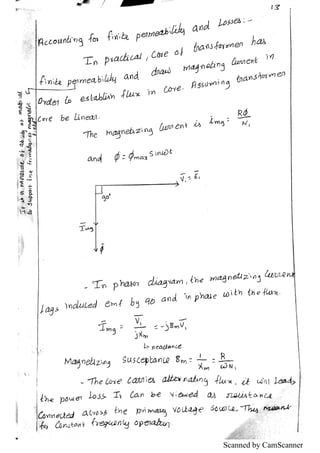 13
Accounting for finite permeability and Losses :-
In practical, Core of transformer has
finite permeability and draw magnetizing current in
Order to establish flux in Core. Assuming transformer
Core be linear.
It is a measure of ability of material
to support the formation of magnetic
The magnetizing Current is img = Rφ / N1
and φ = φmax Sinωt
V̄1 = Ē1
90°
Īmg
φ̄
- In phasor diagram, the magnetizing Current
lags induced emf by 90 and in phase with the flux.
Īmg = V̄1 / jXm = -jBmV̄1
↳ reactance
Magnetizing Susceptance Bm = 1 / Xm = R / ωN1
- The Core Carries alternating flux, it will leads
the power loss. It Can be viewed as resistance
Connected across the primary voltage Source. This
for Constant frequenly operation
Scanned by CamScanner